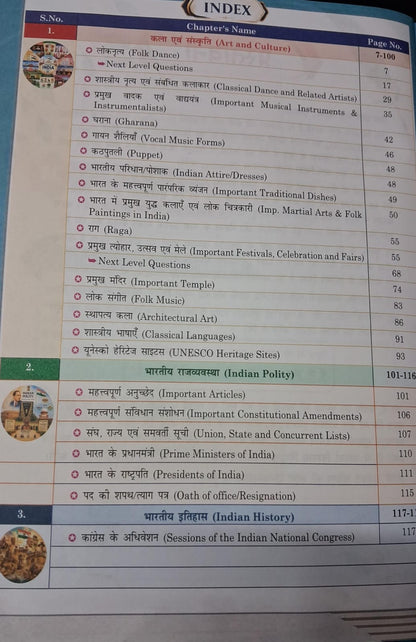 INDEX
S.No. Chapter's Name Page No.
1. कला एवं संस्कृति (Art and Culture) 7-100
लोकनृत्य (Folk Dance) 7
➥Next Level Questions 17
शास्त्रीय नृत्य एवं संबंधित कलाकार (Classical Dance and Related Artists) 29
प्रमुख वादक एवं वाद्ययंत्र (Important Musical Instruments & 35
Instrumentalists)
घराना (Gharana) 42
गायन शैलियाँ (Vocal Music Forms) 46
कठपुतली (Puppet) 48
भारतीय परिधान/पोशाक (Indian Attire/Dresses) 48
भारत के महत्त्वपूर्ण पारंपरिक व्यंजन (Important Traditional Dishes) 49
भारत में प्रमुख युद्ध कलाएँ एवं लोक चित्रकारी (Imp. Martial Arts & Folk 50
Paintings in India)
राग (Raga) 55
प्रमुख त्योहार, उत्सव एवं मेले (Important Festivals, Celebration and Fairs) 55
➥Next Level Questions 68
प्रमुख मंदिर (Important Temple) 74
लोक संगीत (Folk Music) 83
स्थापत्य कला (Architectural Art) 86
शास्त्रीय भाषाएँ (Classical Languages) 91
यूनेस्को हेरिटेज साइटस (UNESCO Heritage Sites) 93
2. भारतीय राजव्यवस्था (Indian Polity) 101-116
महत्त्वपूर्ण अनुच्छेद (Important Articles) 101
महत्त्वपूर्ण संविधान संशोधन (Important Constitutional Amendments) 106
संघ, राज्य एवं समवर्ती सूची (Union, State and Concurrent Lists) 107
भारत के प्रधानमंत्री (Prime Ministers of India) 110
भारत के राष्ट्रपति (Presidents of India) 111
पद की शपथ/त्याग पत्र (Oath of office/Resignation) 115
3. भारतीय इतिहास (Indian History) 117-1
कांग्रेस के अधिवेशन (Sessions of the Indian National Congress) 117